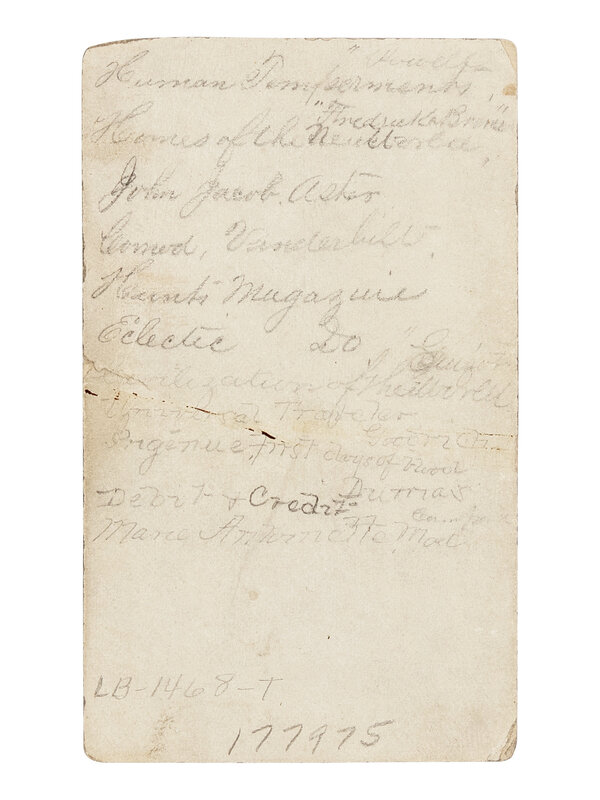 "Powells
Human Temperments,
"Fredricka Bremer"
Homes of the New World,
John Jacob Astor
Comod, Vanderbilt
Hunts Magazine
Eclectic Do
"Guizot
Civilization of the World
Universal Traveler
Goodrich
Ingenue, first days of Blood
Dumas
Debit & Credit
Marie Antoinette, Mad
LB-1468-T
177975